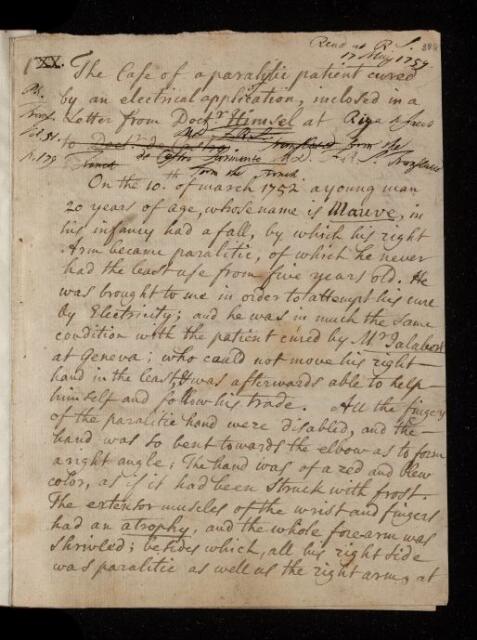 Read at R. S.
17 May 1759
XX. The Case of a paralytic patient cured
by an electrical application, inclosed in a
Letter from Doctr. Himsel at Riga
to Doctr. de Castro
de Castro Sarmento M.D. F.R.S. Translated
from the French
On the 10th. of march 1752 a young man
20 years of age, whose name is Mauve, in
his infancy had a fall, by which his right
Arm became paralitic, of which he never
had the least use from five years old. He
was brought to me in order to attempt his cure
by Electricity; and he was in much the same
condition with the patient cured by Mr. Jalabert
at Geneva; who could not move his right
hand in the least, & was afterwards able to help
himself and follow his trade. All the fingers
of the paralitic hand were disabled, and the
hand was so bent towards the elbow as to form
a right angle; The hand was of a red and blew
color, as if it had been struck with frost.
The extensor muscles of the wrist and fingers
had an atrophy, and the whole fore-arm was
shrivled; besides which, all his right side
was paralitic as well as the right arm, at